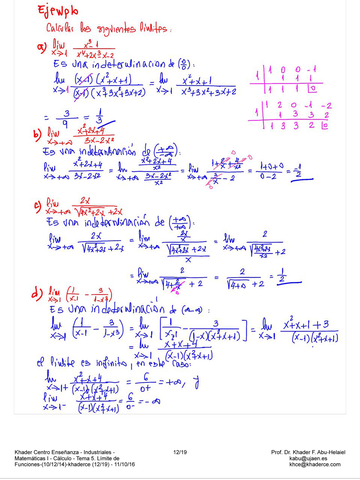 Ejemplo
Calcular los siguientes límites:
a) lim x→1 (x³-1)/(x⁴+2x³-x-2)
Es una indeterminación de (0/0):
lim x→1 (x-1)(x²+x+1)/(x-1)(x³+3x²+3x+2) = lim x→1 (x²+x+1)/(x³+3x²+3x+2)
= 3/9 = 1/3
1 0 0 -1
1 | 1 1 1
1 1 1 |0
1 2 0 -1 -2
1 | 1 3 3 2
1 3 3 2 |0
b) lim x→+∞ (x²+2x+4)/(3x-2x²)
Es una indeterminación de (+∞/-∞):
lim x→+∞ (x²+2x+4)/(3x-2x²) = lim x→+∞ ((x²+2x+4)/x²)/((3x-2x²)/x²) = lim x→+∞ (1+2/x+4/x²)/(3/x-2) = (1+0+0)/(0-2) = -1/2
c) lim x→+∞ 2x/(√4x²+2x +2x)
Es una indeterminación de (+∞/+∞):
lim x→+∞ 2x/(√4x²+2x +2x) = lim x→+∞ (2x/x)/((√4x²+2x +2x)/x) = lim x→+∞ 2/(√(4x²+2x)/x² +2)
= lim x→+∞ 2/(√4+2/x +2) = 2/(√4+0 +2) = 1/2
d) lim x→1 (1/(x-1) - 3/(1-x³))
Es una indeterminación de (∞-∞):
lim x→1 (1/(x-1) - 3/(1-x³)) = lim x→1 [1/(x-1) - 3/(1-x)(x²+x+1)] = lim x→1 (x²+x+1+3)/(x-1)(x²+x+1)
= lim x→1 (x²+x+4)/(x-1)(x²+x+1)
el límite es infinito, en este caso:
lim x→1+ (x²+x+4)/(x-1)(x²+x+1) = 6/0+ = +∞, y
lim x→1- (x²+x+4)/(x-1)(x²+x+1) = 6/0- = -∞
Khader Centro Enseñanza - Industriales - 12/19 Prof. Dr. Khader F. Abu-Helaiel
Matemáticas I - Cálculo - Tema 5. Límite de kabu@ujaen.es
Funciones-(10/12/14)-khaderce (12/19) - 11/10/16 khce@khaderce.com